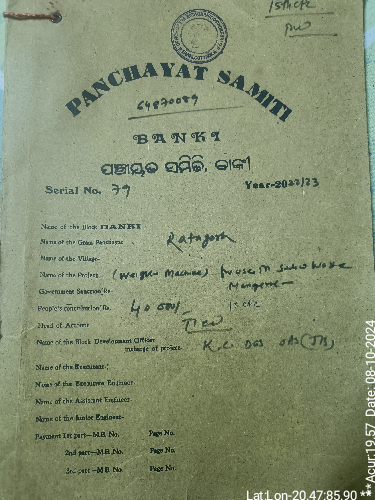 15th CFC
PANCHAYAT SAMITI
64870089
BANKI
ପଞ୍ଚାୟତ ସମିତି, ବାଙ୍କୀ
Serial No. 79
Year-2022/23
Name of the Block BANKI
Name of the Gram Panchayat
Name of the Village-
Name of the Project- (Weight Machine)
Government Sanction|Rs.
People's contribution|Rs. 40000/- 15 CFC
Head of Account
Name of the Block Development Officer
incharge of project- K.C. Das OAS (JB)
Name of the Executant-|
Name of the Executive Engineer-
Name of the Assistant Engineer-
Name of the Junior Engineer-
Payment 1st part-M.B. No. Page No.
2nd part-M.B. No. Page No.
3rd part-M.B. No. Page No.
Lat:Lon-20.47:85.90 **Acur:19.57 Date:08-10-2024